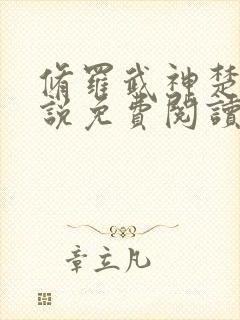 脩羅武神楚
說免費閱讀
章立凡